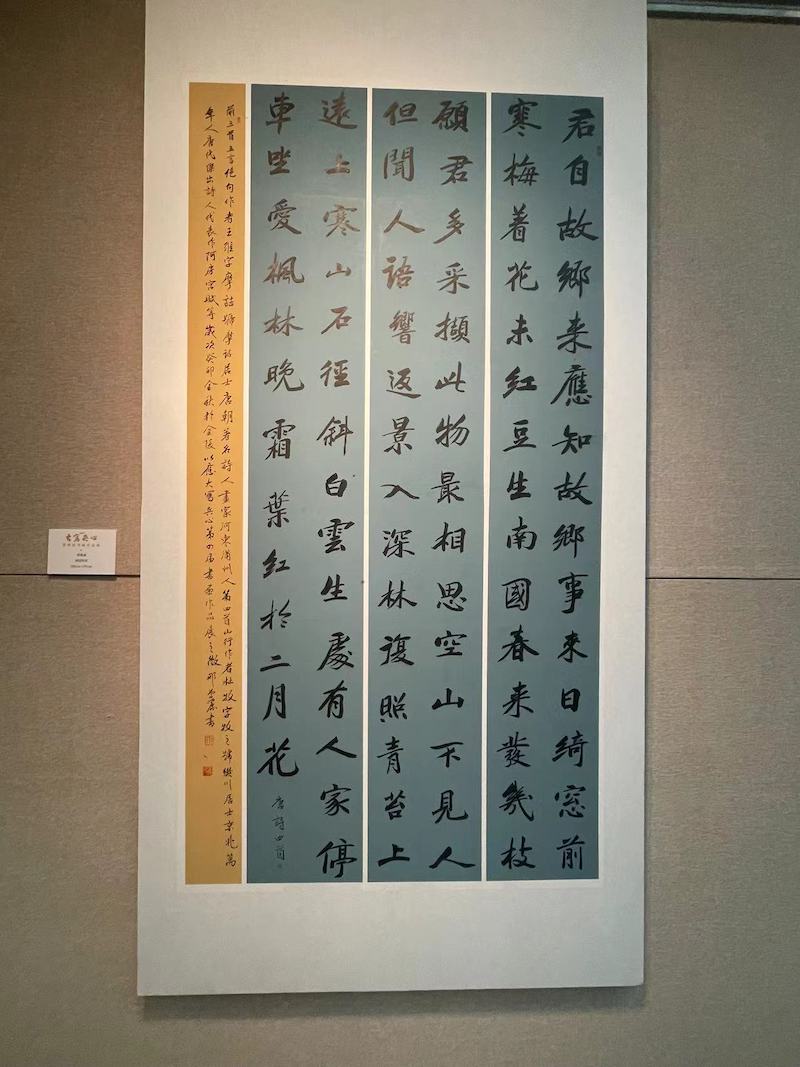 君自故鄉来應知故鄉事来日綺窓前
寒梅着花未红豆生南國春来發幾枝
願君多采擷此物最相思空山不見人
但聞人語響返景入深林復照青苔上
遠上寒山石徑斜白雲生處有人家停
車坐愛楓林晚霜葉红於二月花
唐詩四首
前三首五言绝句作者王維字摩詰號摩詰居士唐朝著名詩人畫家河東蒲州人第四首山行作者杜牧字牧之號樊川居士京兆萬
年人唐代傑出詩人代表作阿房宫賦等歲次癸卯金秋於金陵以應大寫兵心第四届書画作品展之徵邱書
大寫兵心